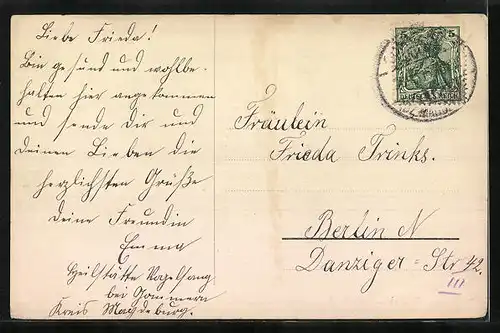 Liebe Frieda!
Bin gesund und wohlbe-
halten hier angekommen
und sende dir und
deinen Lieben die
herzlichsten Grüße
deine Freundin
Emma
Heilstätte Vogelsang
bei Gommern
Kreis Magdeburg.
5
Fräulein
Frieda Trinks.
Berlin N
Danziger-Str 42.
III